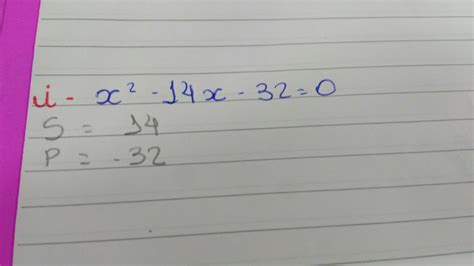 i - x² - 14x - 32 = 0
S = 14
P = - 32